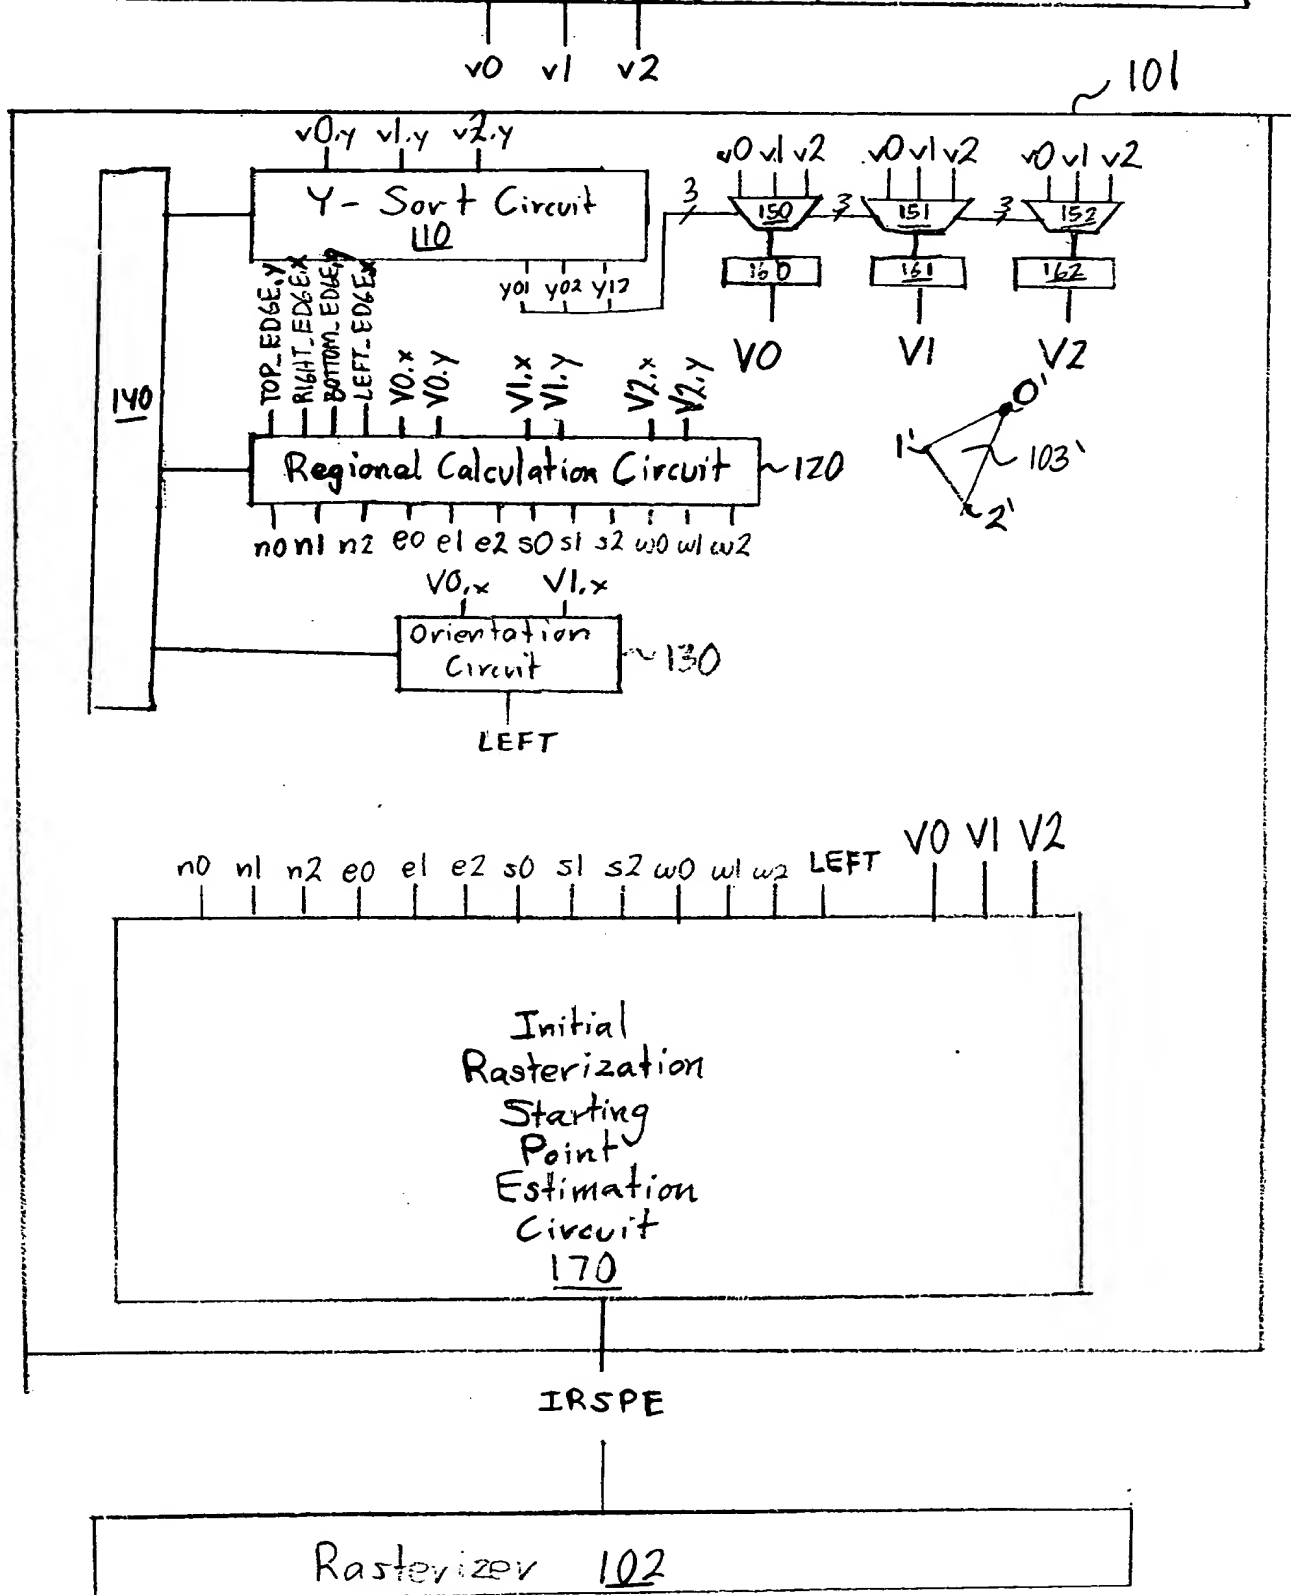 v0 v1 v2
101
v0.y v1.y v2.y
v0 v1 v2 v0 v1 v2 v0 v1 v2
Y-Sort Circuit
110
3 150 3 151 3 152
160 161 162
y01 y02 y12
V0 V1 V2
TOP_EDGE.y
RIGHT_EDGE.x
BOTTOM_EDGE.y
LEFT_EDGE.x
V0.x
V0.y
V1.x
V1.y
V2.x
V2.y
140
0'
1'
103'
2'
Regional Calculation Circuit 120
n0 n1 n2 e0 e1 e2 s0 s1 s2 w0 w1 w2
V0.x V1.x
Orientation
Circuit
130
LEFT
n0 n1 n2 e0 e1 e2 s0 s1 s2 w0 w1 w2 LEFT V0 V1 V2
Initial
Rasterization
Starting
Point
Estimation
Circuit
170
IRSPE
Rasterizer 102